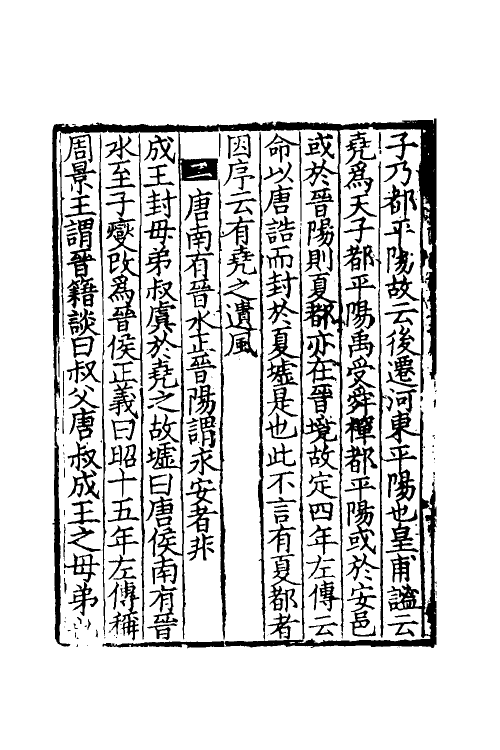 子乃都平陽故云後遷河東平陽也皇甫謐云
堯爲天子都平陽禹受舜禪都平陽或於安邑
或於晉陽則夏都亦在晉境故定四年左傳云
命以唐誥而封於夏墟是也此不言有夏都者
因序云有堯之遺風
二 唐南有晉水正晉陽謂永安者非
成王封母弟叔虞於堯之故墟曰唐侯南有晉
水至子變改爲晉侯正義曰昭十五年左傳稱
周景王謂晉籍談曰叔父唐叔成王之母弟